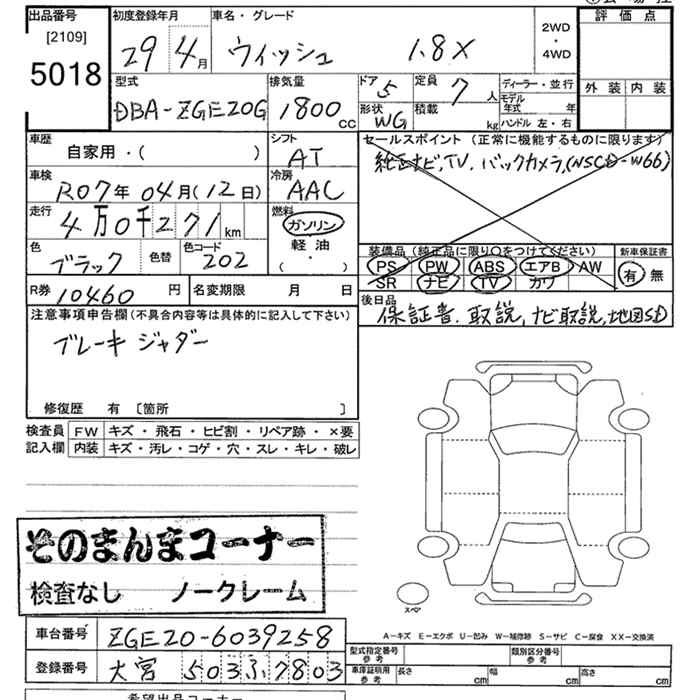 出品番号 初度登録年月 車名・グレード 評価点
[2109] 2WD
5018 29 4月 ウィッシュ 1.8X ・
4WD
外装 内装
型式 排気量 ドア 5 定員 7人 ディーラー・並行
DBA-ZGE20G 1800cc 形状 WG 積載 kg モデル年式 年
ハンドル 左・右
車歴 シフト セールスポイント (正常に機能するものに限ります)
自家用・( ) AT 純正ナビ,TV,バックカメラ,(NSCD-W66)
車検 冷房
R07年 04月(12日) AAC
走行 燃料
4万0千271km ガソリン
軽油
( ・ )
色 色替 色コード 装備品 (純正品に限り○をつけてください) 新車保証書
ブラック 202 PS PW ABS エアB AW 有 無
SR ナビ TV カワ
R券 10460円 名変期限 月 日 後日品
保証書.取説,ナビ取説,地図SD
注意事項申告欄(不具合内容等は具体的に記入して下さい)
ブレーキ ジャダー
修復歴 有 〔箇所 〕
検査員 FW キズ・飛石・ヒビ割・リペア跡・×要
記入欄 内装 キズ・汚レ・コゲ・穴・スレ・キレ・破レ
そのまんまコーナー
検査なし ノークレーム
スペア
A－キズ E－エクボ U－凹み W－補修跡 S－サビ C－腐食 XX－交換済
車台番号 ZGE20-6039258 型式指定番号 参考 類別区分番号 参考
登録番号 大宮 503ふ7803 車庫証明用 参考 長さ cm 幅 cm 高さ cm
希望出品コーナー